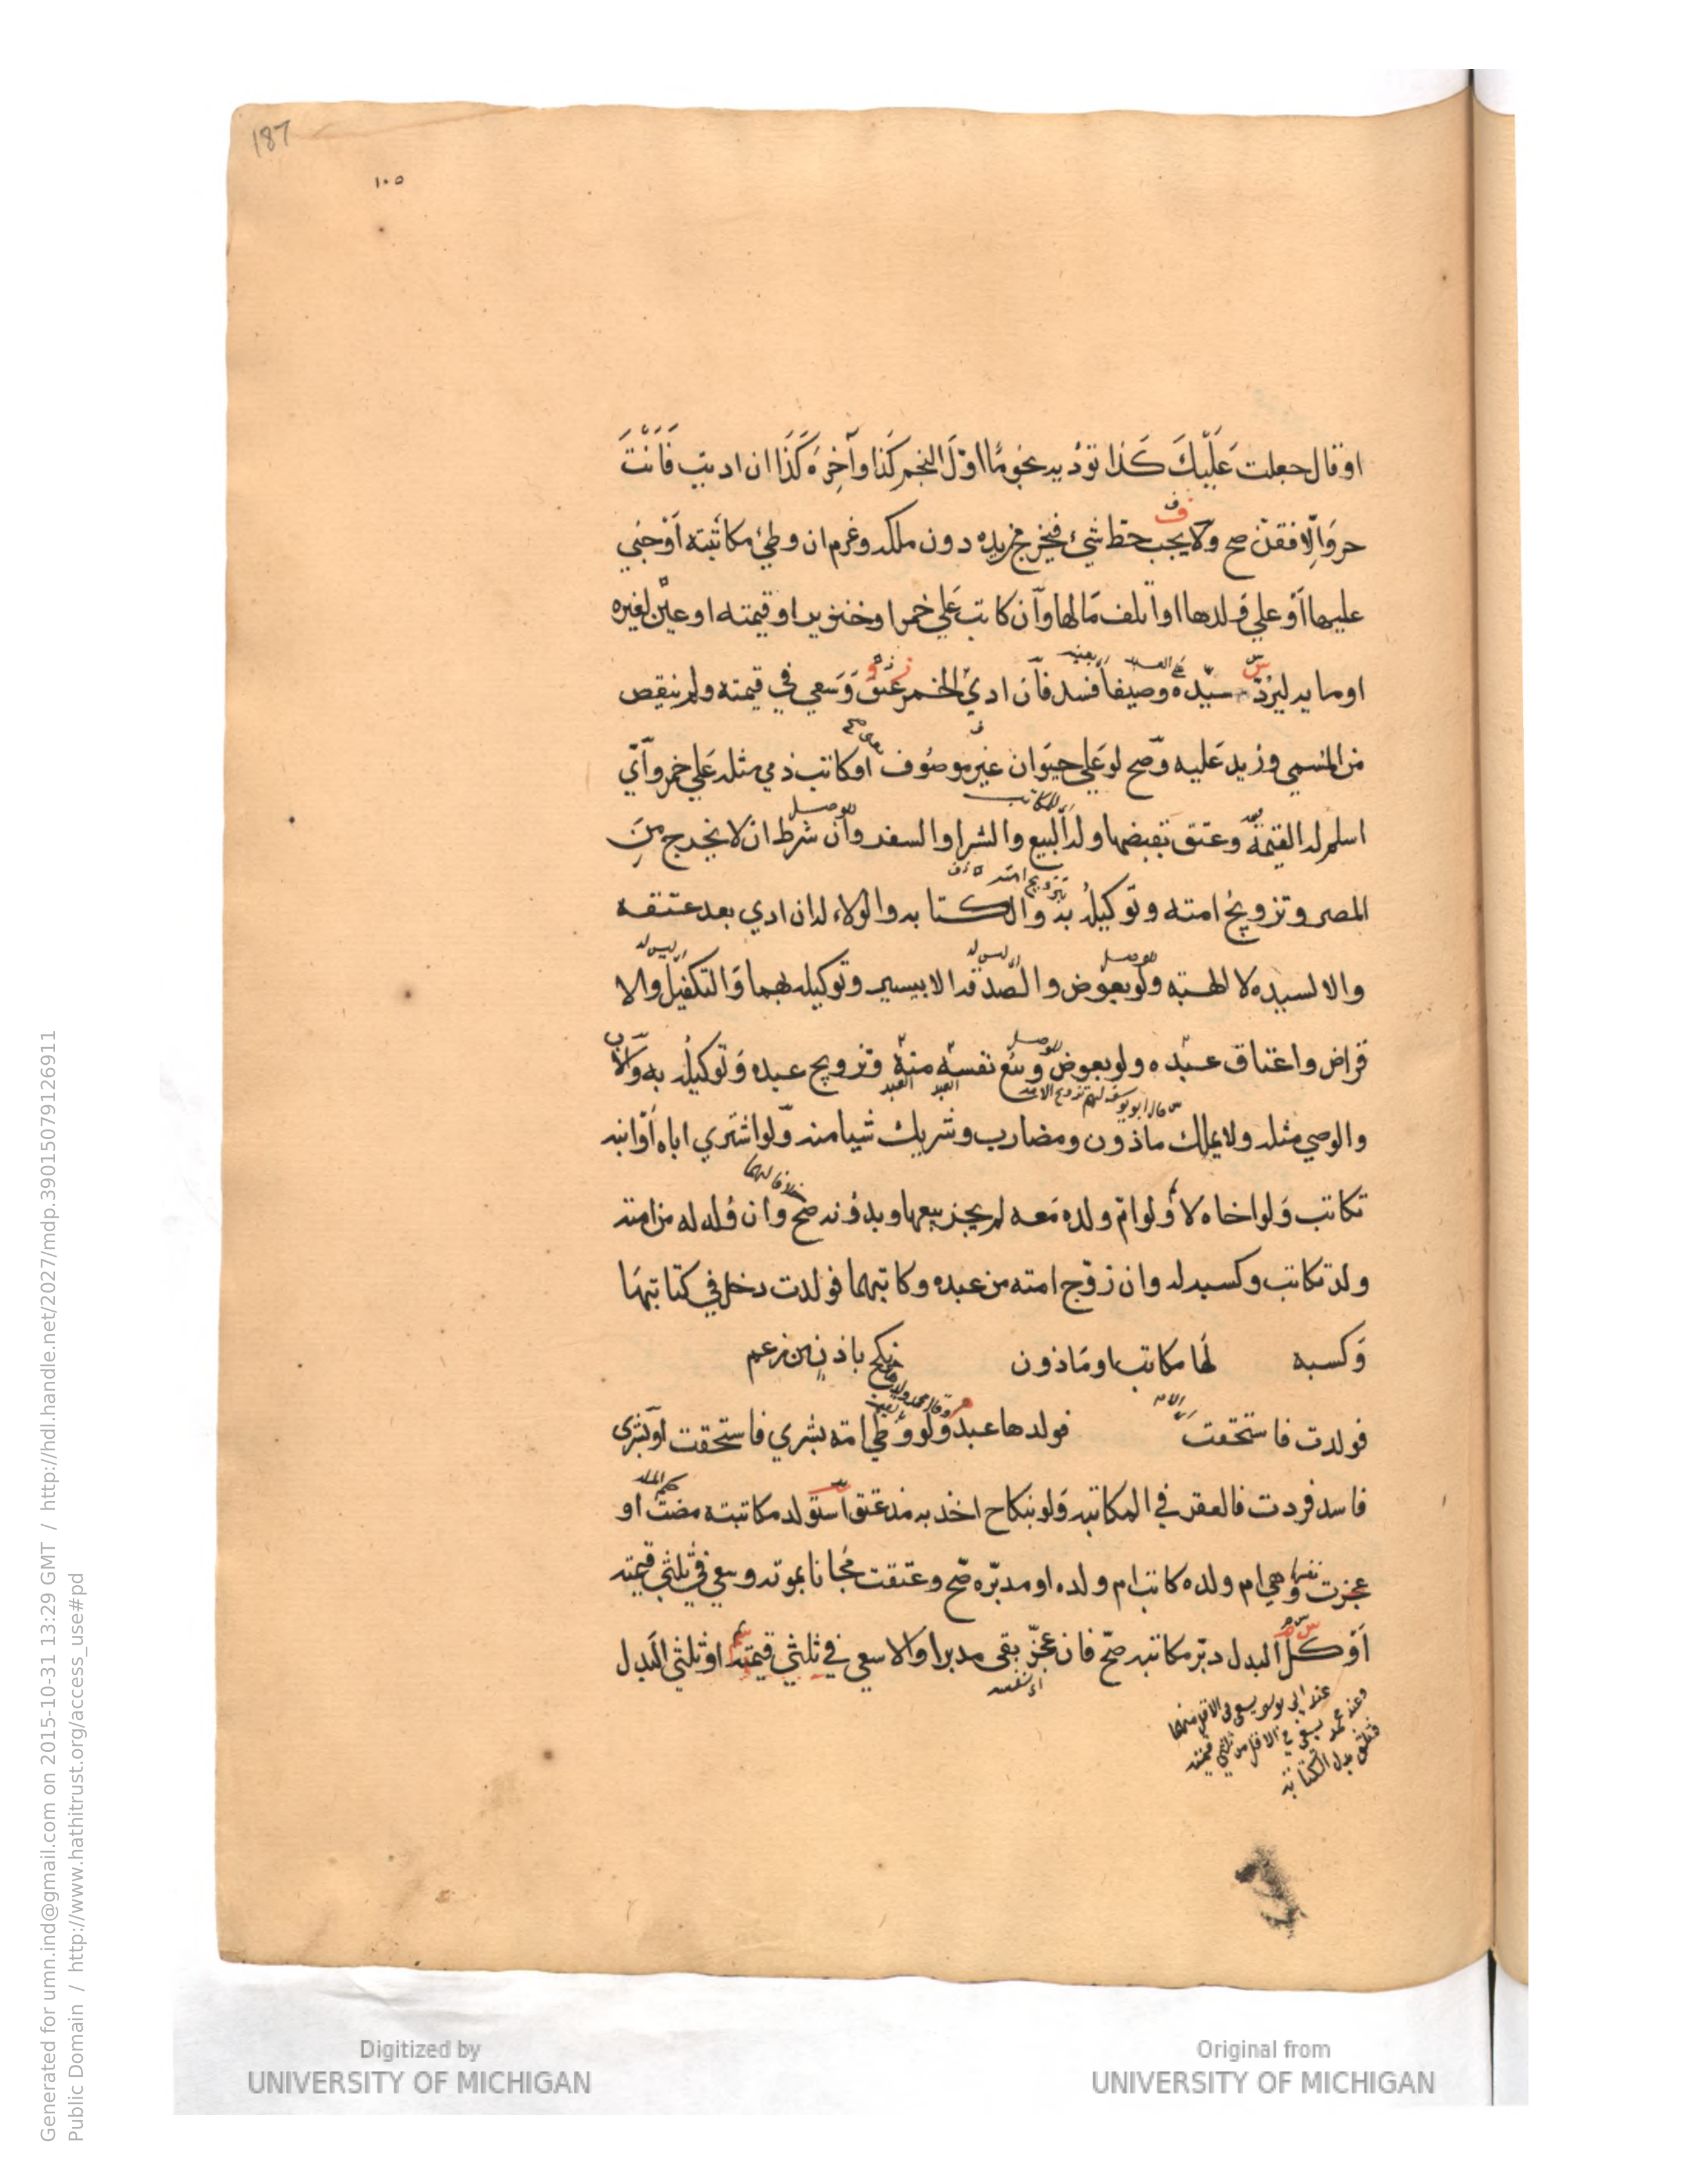 187
١٠٥
او قال جعلت عَلَيْكَ كَذا تؤديه نجومًا اوّلَ النجم كذا وآخِرُهُ كَذَا ان اديته فَاَنْتَ
حر وَاِلّا فقنّ صح ولا يجب حط شئ فيخرج من يده دون ملكه وغرم ان وطئ مكاتبته اَوْ جَنى
عليها اَوْ علي وَلدها او اتلف مَالها وآن كاتب عَلي خمر او خنزير او قيمته او عين لغيره
او مايه ليردّ سيّده وصيفًا فسد فآن ادي الخمر عتق وَسَعي في قيمته ولم ينقص
من المسمي وزيد عَليه وَصح لو عَلي حيوان غير موصُوف او كاتب ذمي مثله عَلي خمر وآيّ
اسلم له القيمة وعتق بقبضها وله البيع والشرا والسفر وآن شرط ان لا يخرج مِنَ
المصر وتزويجُ امته وتوكيله به والكتابه والولاء له ان ادي بعد عتقه
والا لسيده لا الهبه ولو بعوض والصدقه الا بيسير وتوكيله بهما وَالتكفيل والا
قراض واعتاق عبده ولو بعوض وبَيْع نفسه منه وتزويج عبده وَتوكيله به وَالاب
والوصي مثله ولا يملك ماذون ومضارب وشريك شيا منه وّلو اشتري اباه اَوْ ابنه
تكاتب وَلو اخاه لا وَلو امّ ولده مَعه لم يجز بيعها وبدُونه صح وان وُلد له من امته
ولد تكاتب وكسبه له وان زوّج امته من عبده وكاتبهما فولدت دخل في كتابتها
وَكسبه لَها مكاتب او مَاذون نكح باذنٍ من زعم
فولدت فاستحقت فولدها عبد ولو وطي امته بشري فاستحقت اَوْ بشرى
فاسد فردت فالعقر في المكاتبه وَلو بنكاح اخذ به مذ عتق استولد مكاتبته مضت او
عجزت وهي ام ولده كاتب ام ولده او مدبّره صّح وعتقت مجانا بموته وسعي في ثلثي قيمته
اَوْ كل البدل دبّر مكاتبه صّح فان عجزّ بقي مدبرا والا سعي في ثلثي قيمته او ثلثي البَدل
عند ابي يوسف يسعى فى الاقل منهما
وعند محمد يسعى في الاقل من ثلثي قيمته
وثلثى بدل الكتابة
Digitized by
UNIVERSITY OF MICHIGAN
Original from
UNIVERSITY OF MICHIGAN
Generated for umn.ind@gmail.com on 2015-10-31 13:29 GMT / http://hdl.handle.net/2027/mdp.39015079126911
Public Domain / http://www.hathitrust.org/access_use#pd